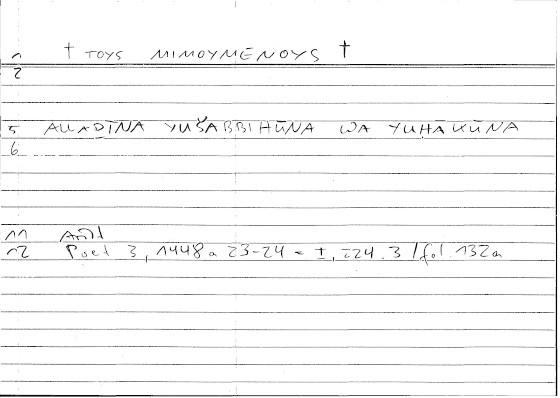 1 † TOYS MIMOYMENOYS †
2
5 ALLADĪNA YUŠABBIHŪNA WA YUHĀKŪNA
6
11 Arist
12 Poet 3, 1448a 23-24 = ±, 224.3 / fol. 132a